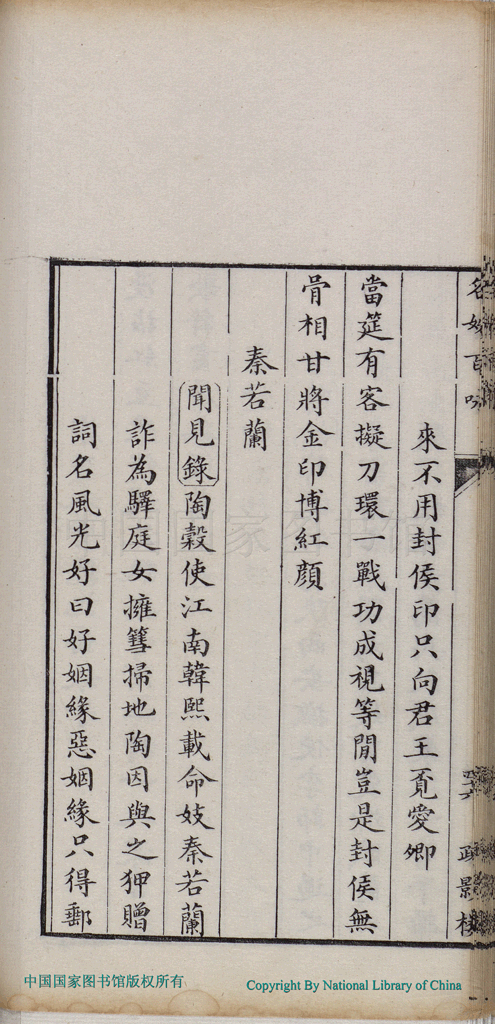 來不用封侯印只向君王覓愛卿
當筵有客擬刀環一戰功成視等閒豈是封侯無
骨相甘將金印博紅顔
秦若蘭
聞見錄陶穀使江南韓熙載命妓秦若蘭
詐為驛庭女擁篲掃地陶因與之狎贈
詞名風光好曰好姻緣惡姻緣只得郵
中国国家图书馆版权所有
Copyright By National Library of China